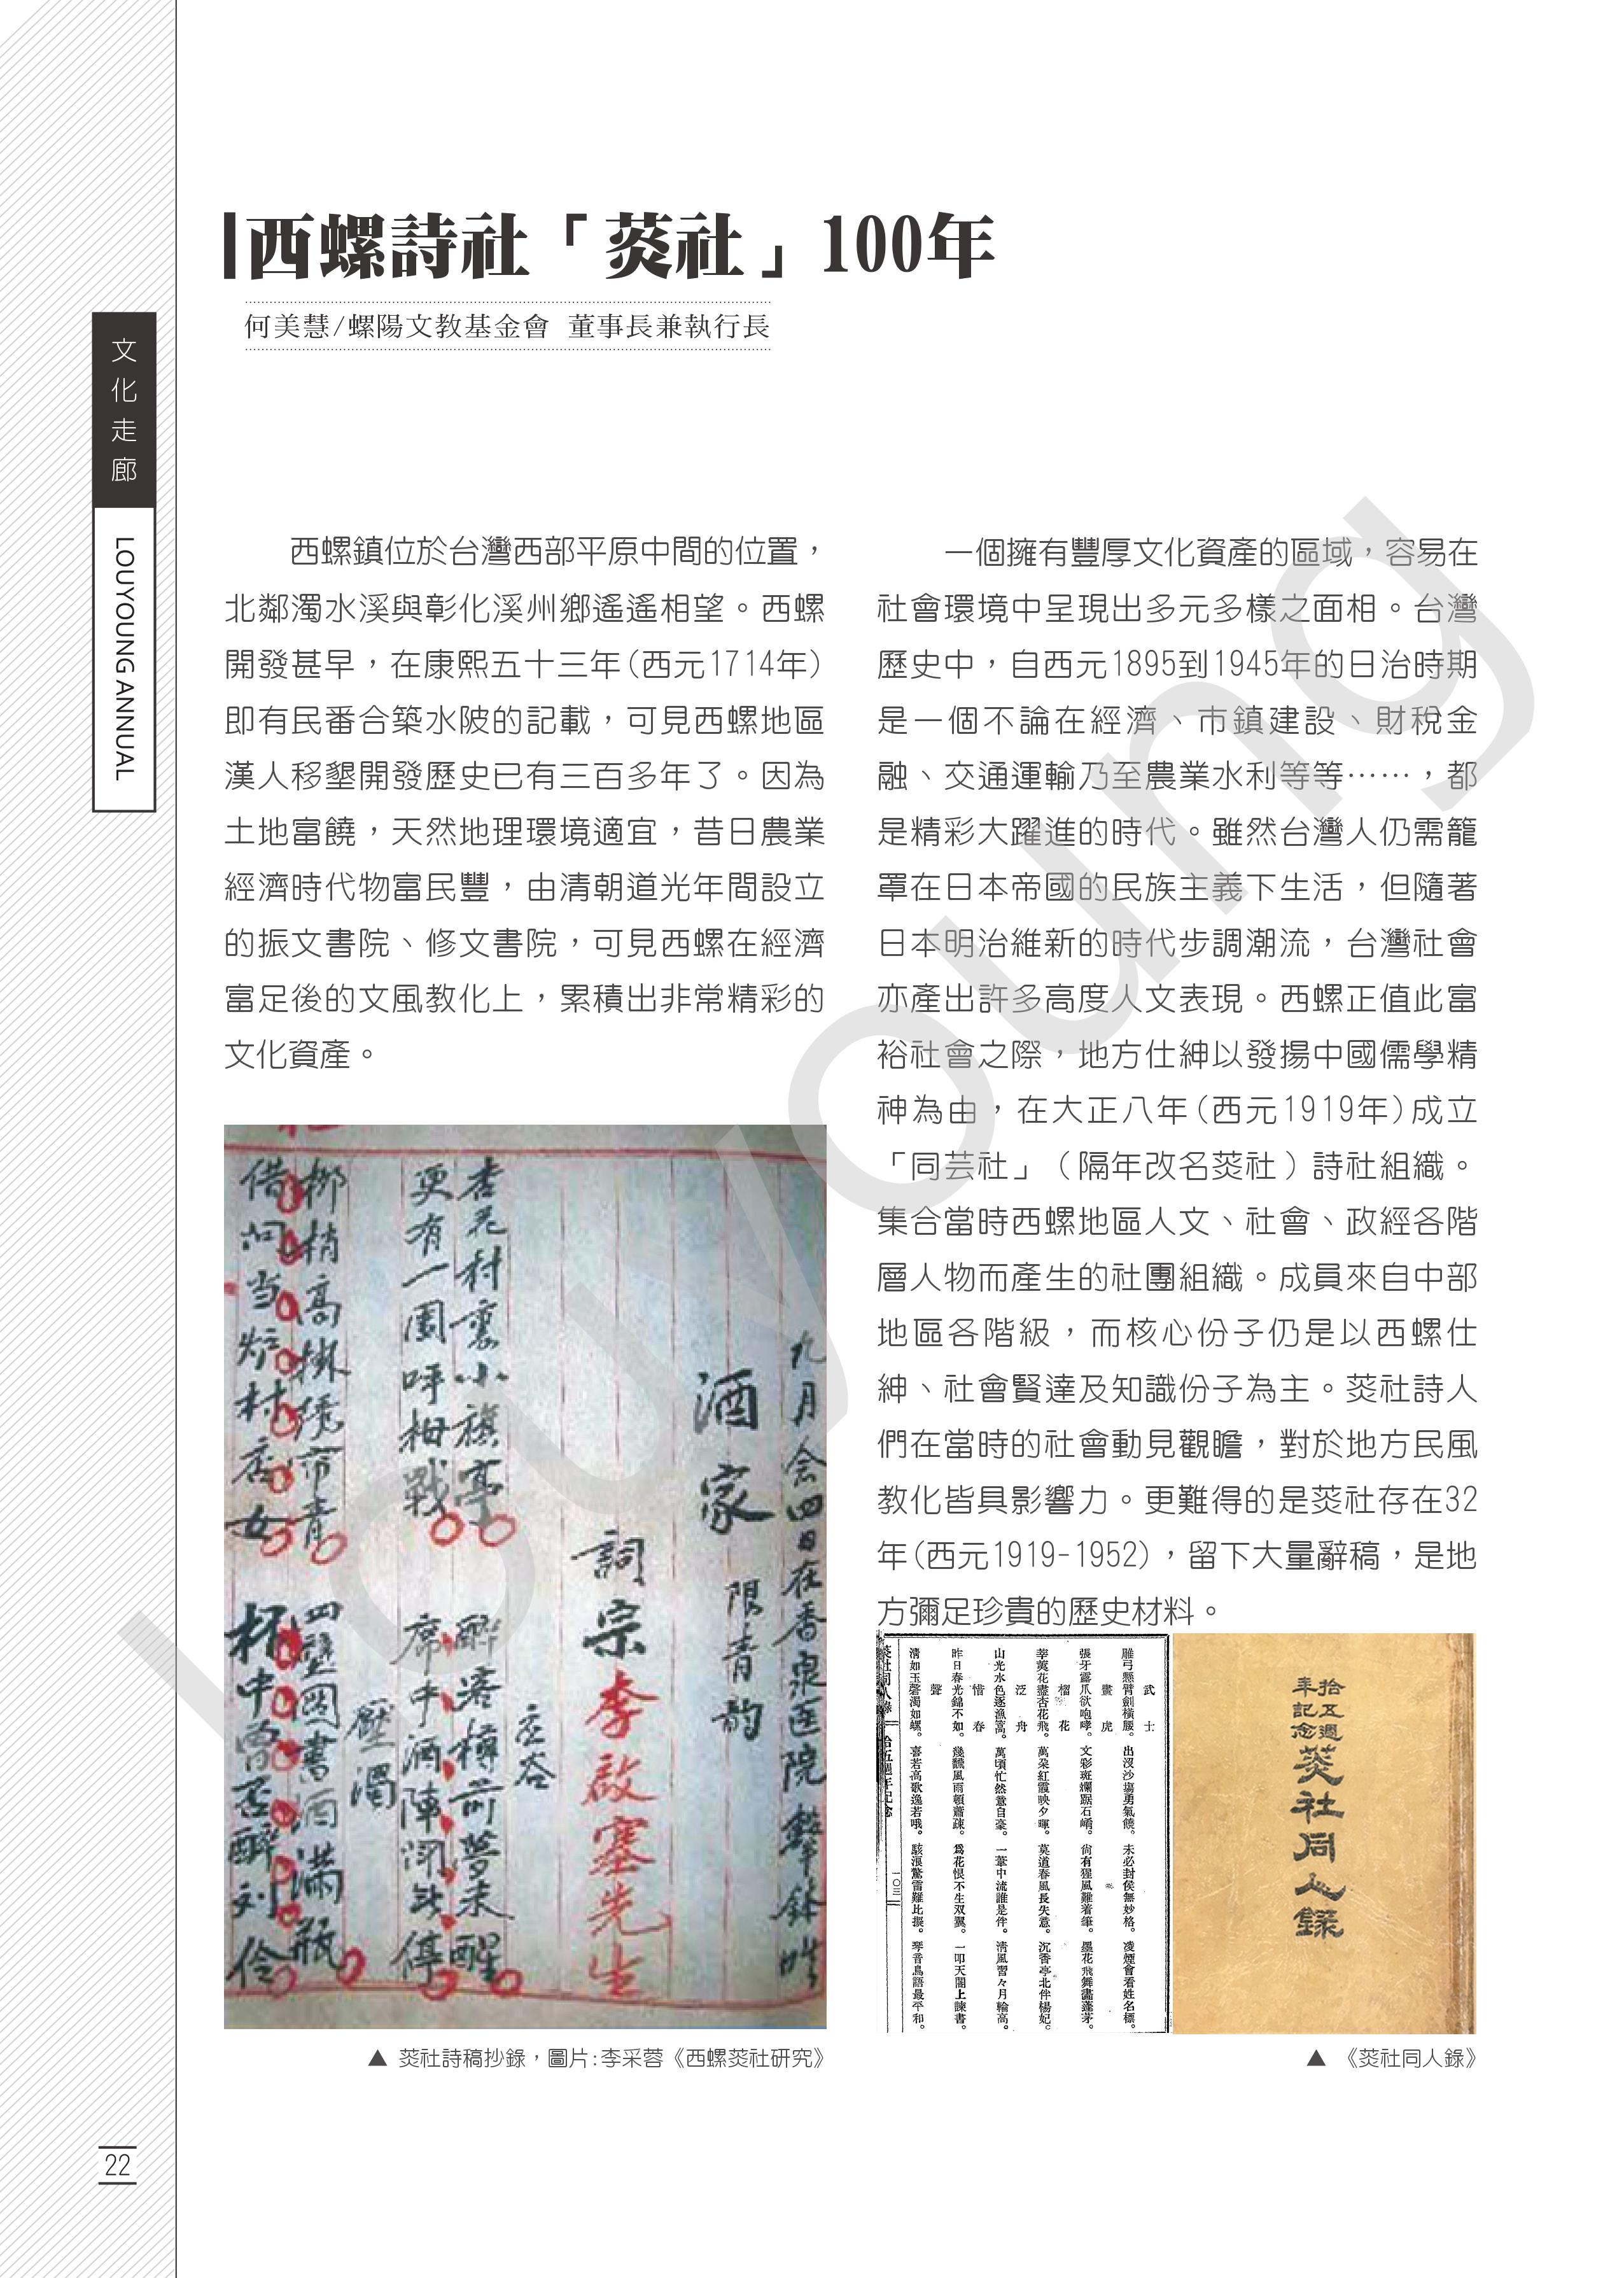 西螺詩社「菼社」100年
何美慧/螺陽文教基金會 董事長兼執行長
文化走廊
LOUYOUNG ANNUAL
西螺鎮位於台灣西部平原中間的位置，
北鄰濁水溪與彰化溪州鄉遙遙相望。西螺
開發甚早，在康熙五十三年(西元1714年)
即有民番合築水陂的記載，可見西螺地區
漢人移墾開發歷史已有三百多年了。因為
土地富饒，天然地理環境適宜，昔日農業
經濟時代物富民豐，由清朝道光年間設立
的振文書院、修文書院，可見西螺在經濟
富足後的文風教化上，累積出非常精彩的
文化資產。
九月会四日在香泉医院
酒家 限青韵
詞宗李啟塞先生
杏花村裏小旗亭
更有一園呼拇戰
壓濁
▲ 菼社詩稿抄錄，圖片:李采蓉《西螺菼社研究》
一個擁有豐厚文化資產的區域，容易在
社會環境中呈現出多元多樣之面相。台灣
歷史中，自西元1895到1945年的日治時期
是一個不論在經濟、市鎮建設、財稅金
融、交通運輸乃至農業水利等等……，都
是精彩大躍進的時代。雖然台灣人仍需籠
罩在日本帝國的民族主義下生活，但隨著
日本明治維新的時代步調潮流，台灣社會
亦產出許多高度人文表現。西螺正值此富
裕社會之際，地方仕紳以發揚中國儒學精
神為由，在大正八年(西元1919年)成立
「同芸社」（隔年改名菼社）詩社組織。
集合當時西螺地區人文、社會、政經各階
層人物而產生的社團組織。成員來自中部
地區各階級，而核心份子仍是以西螺仕
紳、社會賢達及知識份子為主。菼社詩人
們在當時的社會動見觀瞻，對於地方民風
教化皆具影響力。更難得的是菼社存在32
年(西元1919-1952)，留下大量辭稿，是地
方彌足珍貴的歷史材料。
武士
雕弓懸臂劍橫腰。出沒沙場勇氣饒。未必封侯無妙格。凌煙會看姓名標。
畫虎
張牙露爪欲咆哮。文彩斑斕踞石嵧。尙有猩風難着筆。墨花飛舞盡蓬茅。
榴花
萼黃花盡杏花飛。萬朶紅霞映夕暉。莫道春風長失意。沉香亭北伴楊妃。
泛舟
山光水色逐漁蒿。萬頃忙然意自豪。一葦中流誰是伴。淸風習々月輪高。
惜春
昨日春光錦不如。幾飜風雨頓蕭疎。爲花恨不生双翼。一叩天閽上諫書。
聲
淸如玉磬濁如螺。喜若高歌逸若哦。駭浪驚雷難比擬。琴音鳥語最平和。
菼社同人錄 拾五週年記念 一〇三
拾五週
年記念
菼社同人錄
▲ 《菼社同人錄》
22
louyoung